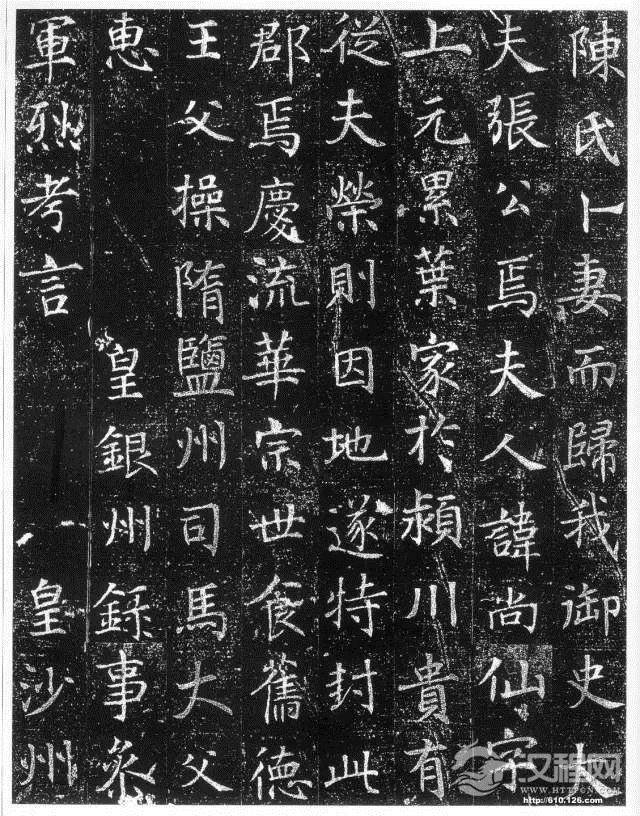 陳氏卜妻而歸我御史大
夫張公焉夫人諱尚仙字
上元累葉家於潁川貴有
從夫榮則因地遂特封此
郡焉慶流華宗世食舊德
王父操隋鹽州司馬大父
惠 皇銀州録事叅
軍烈考言 皇沙州
汉程网
WWW.HTTPCN.COM
http://610.126.com